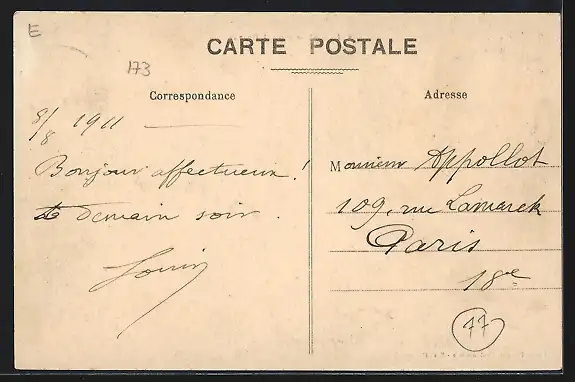 E
CARTE POSTALE
173
Correspondance
Adresse
8/8 1911
Bonjour affectueux !
Demain soir.
Louis
Monsieur Appollot
109, rue Lamarck
Paris
18e
77